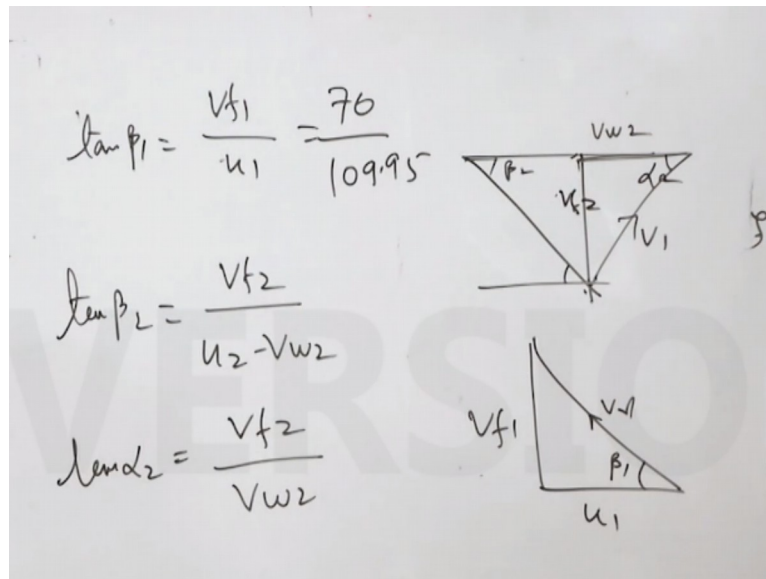 tan β₁ = Vf1 / u1 = 70 / 109.95
tan β₂ = Vf2 / u2 - Vw2
tan α₂ = Vf2 / Vw2
Vw2
β₂ α₂
Vf2
V1
Vf1
β₁
u1
VERSIO